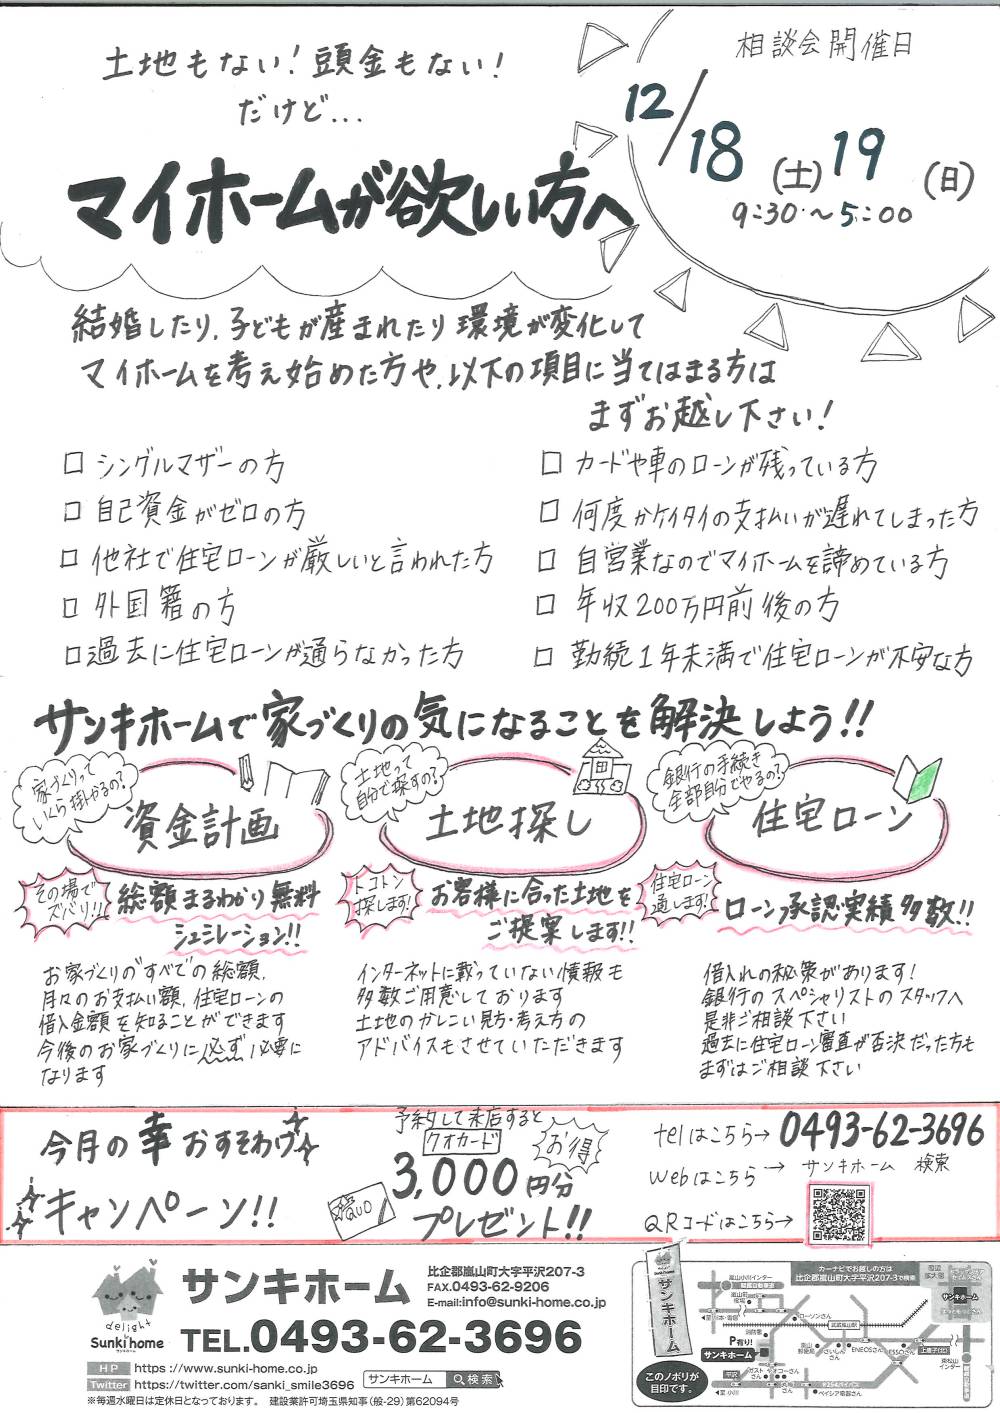 土地もない！頭金もない！
だけど...
マイホームが欲しい方へ
相談会開催日
12/18(土)19(日)
9:30～5:00
結婚したり、子どもが産まれたり環境が変化して
マイホームを考え始めた方や、以下の項目に当てはまる方は
まずお越し下さい！
□ シングルマザーの方
□ 自己資金がゼロの方
□ 他社で住宅ローンが厳しいと言われた方
□ 外国籍の方
□ 過去に住宅ローンが通らなかった方
□ カードや車のローンが残っている方
□ 何度かケイタイの支払いが遅れてしまった方
□ 自営業なのでマイホームを諦めている方
□ 年収200万円前後の方
□ 勤続1年未満で住宅ローンが不安な方
サンキホームで家づくりの気になることを解決しよう!!
家づくりって
いくら掛かるの?
資金計画
その場で
ズバリ!!
総額まるわかり無料
シュミレーション!!
お家づくりの"すべて"の総額、
月々のお支払い額、住宅ローンの
借入金額を知ることができます
今後のお家づくりに必ず必要に
なります
土地って
自分で探すの?
土地探し
トコトン
探します!
お客様に合った土地を
ご提案します!!
インターネットに載っていない情報も
多数ご用意しております
土地のかしこい見方・考え方の
アドバイスもさせていただきます
銀行の手続き
全部自分でやるの?
住宅ローン
住宅ローン
通します!
ローン承認実績多数!!
借入れの秘策があります!
銀行のスペシャリストのスタッフへ
是非ご相談下さい
過去に住宅ローン審査が否決だった方も
まずはご相談下さい
今月の幸おすそわけ
キャンペーン!!
予約して来店すると
クオカード
3,000円分
お得
QUO
プレゼント!!
telはこちら→0493-62-3696
webはこちら→ サンキホーム 検索
QRコードはこちら→
delight
Sunki home
サンキホーム
比企郡嵐山町大字平沢207-3
FAX.0493-62-9206
E-mail:info@sunki-home.co.jp
TEL.0493-62-3696
HP https://www.sunki-home.co.jp
Twitter https://twitter.com/sanki_smile3696
サンキホーム 検索
※毎週水曜日は定休日となっております。 建設業許可埼玉県知事(般-29)第62094号
サンキホーム
カーナビでお越しの方は
比企郡嵐山町大字平沢207-3で検索
嵐山小川インター
武蔵嵐山駅
ローソンさん
P有り!
サンキホーム
ENEOSさん
ESSOさん
東松山
インター
ベイシア電器さん
サンキホーム
このノボリが
目印です。